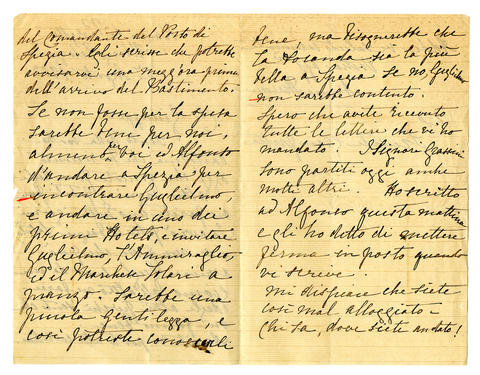 del Comandante del Porto di
Spezia. Egli scrisse che potrebbe
avvisarvi una mezz'ora prima
dell'arrivo del Bastimento.
Se non fosse per la spesa
sarebbe bene per noi,
almeno per voi ed Alfonso
d'andare a Spezia per
incontrare Guglielmo,
e andare in uno dei
primi Hotels, e invitare
Guglielmo, l'Ammiraglio,
ed il Marchese Solari a
pranzo. Sarebbe una
piccola gentilezza, e
così potreste conoscerli
bene, ma bisognerebbe che
la locanda sia la più
bella a Spezia se no Guglielmo
non sarebbe contento.
Spero che avete ricevuto
tutte le lettere che vi ho
mandato. I Signori
sono partiti oggi anche
molti altri. Ho scritto
ad Alfonso questa mattina
e gli ho detto di mettere
ferma in posta quando
vi scrive.
Mi dispiace che siete
così mal alloggiato –
Chi sa, dove siete andato!